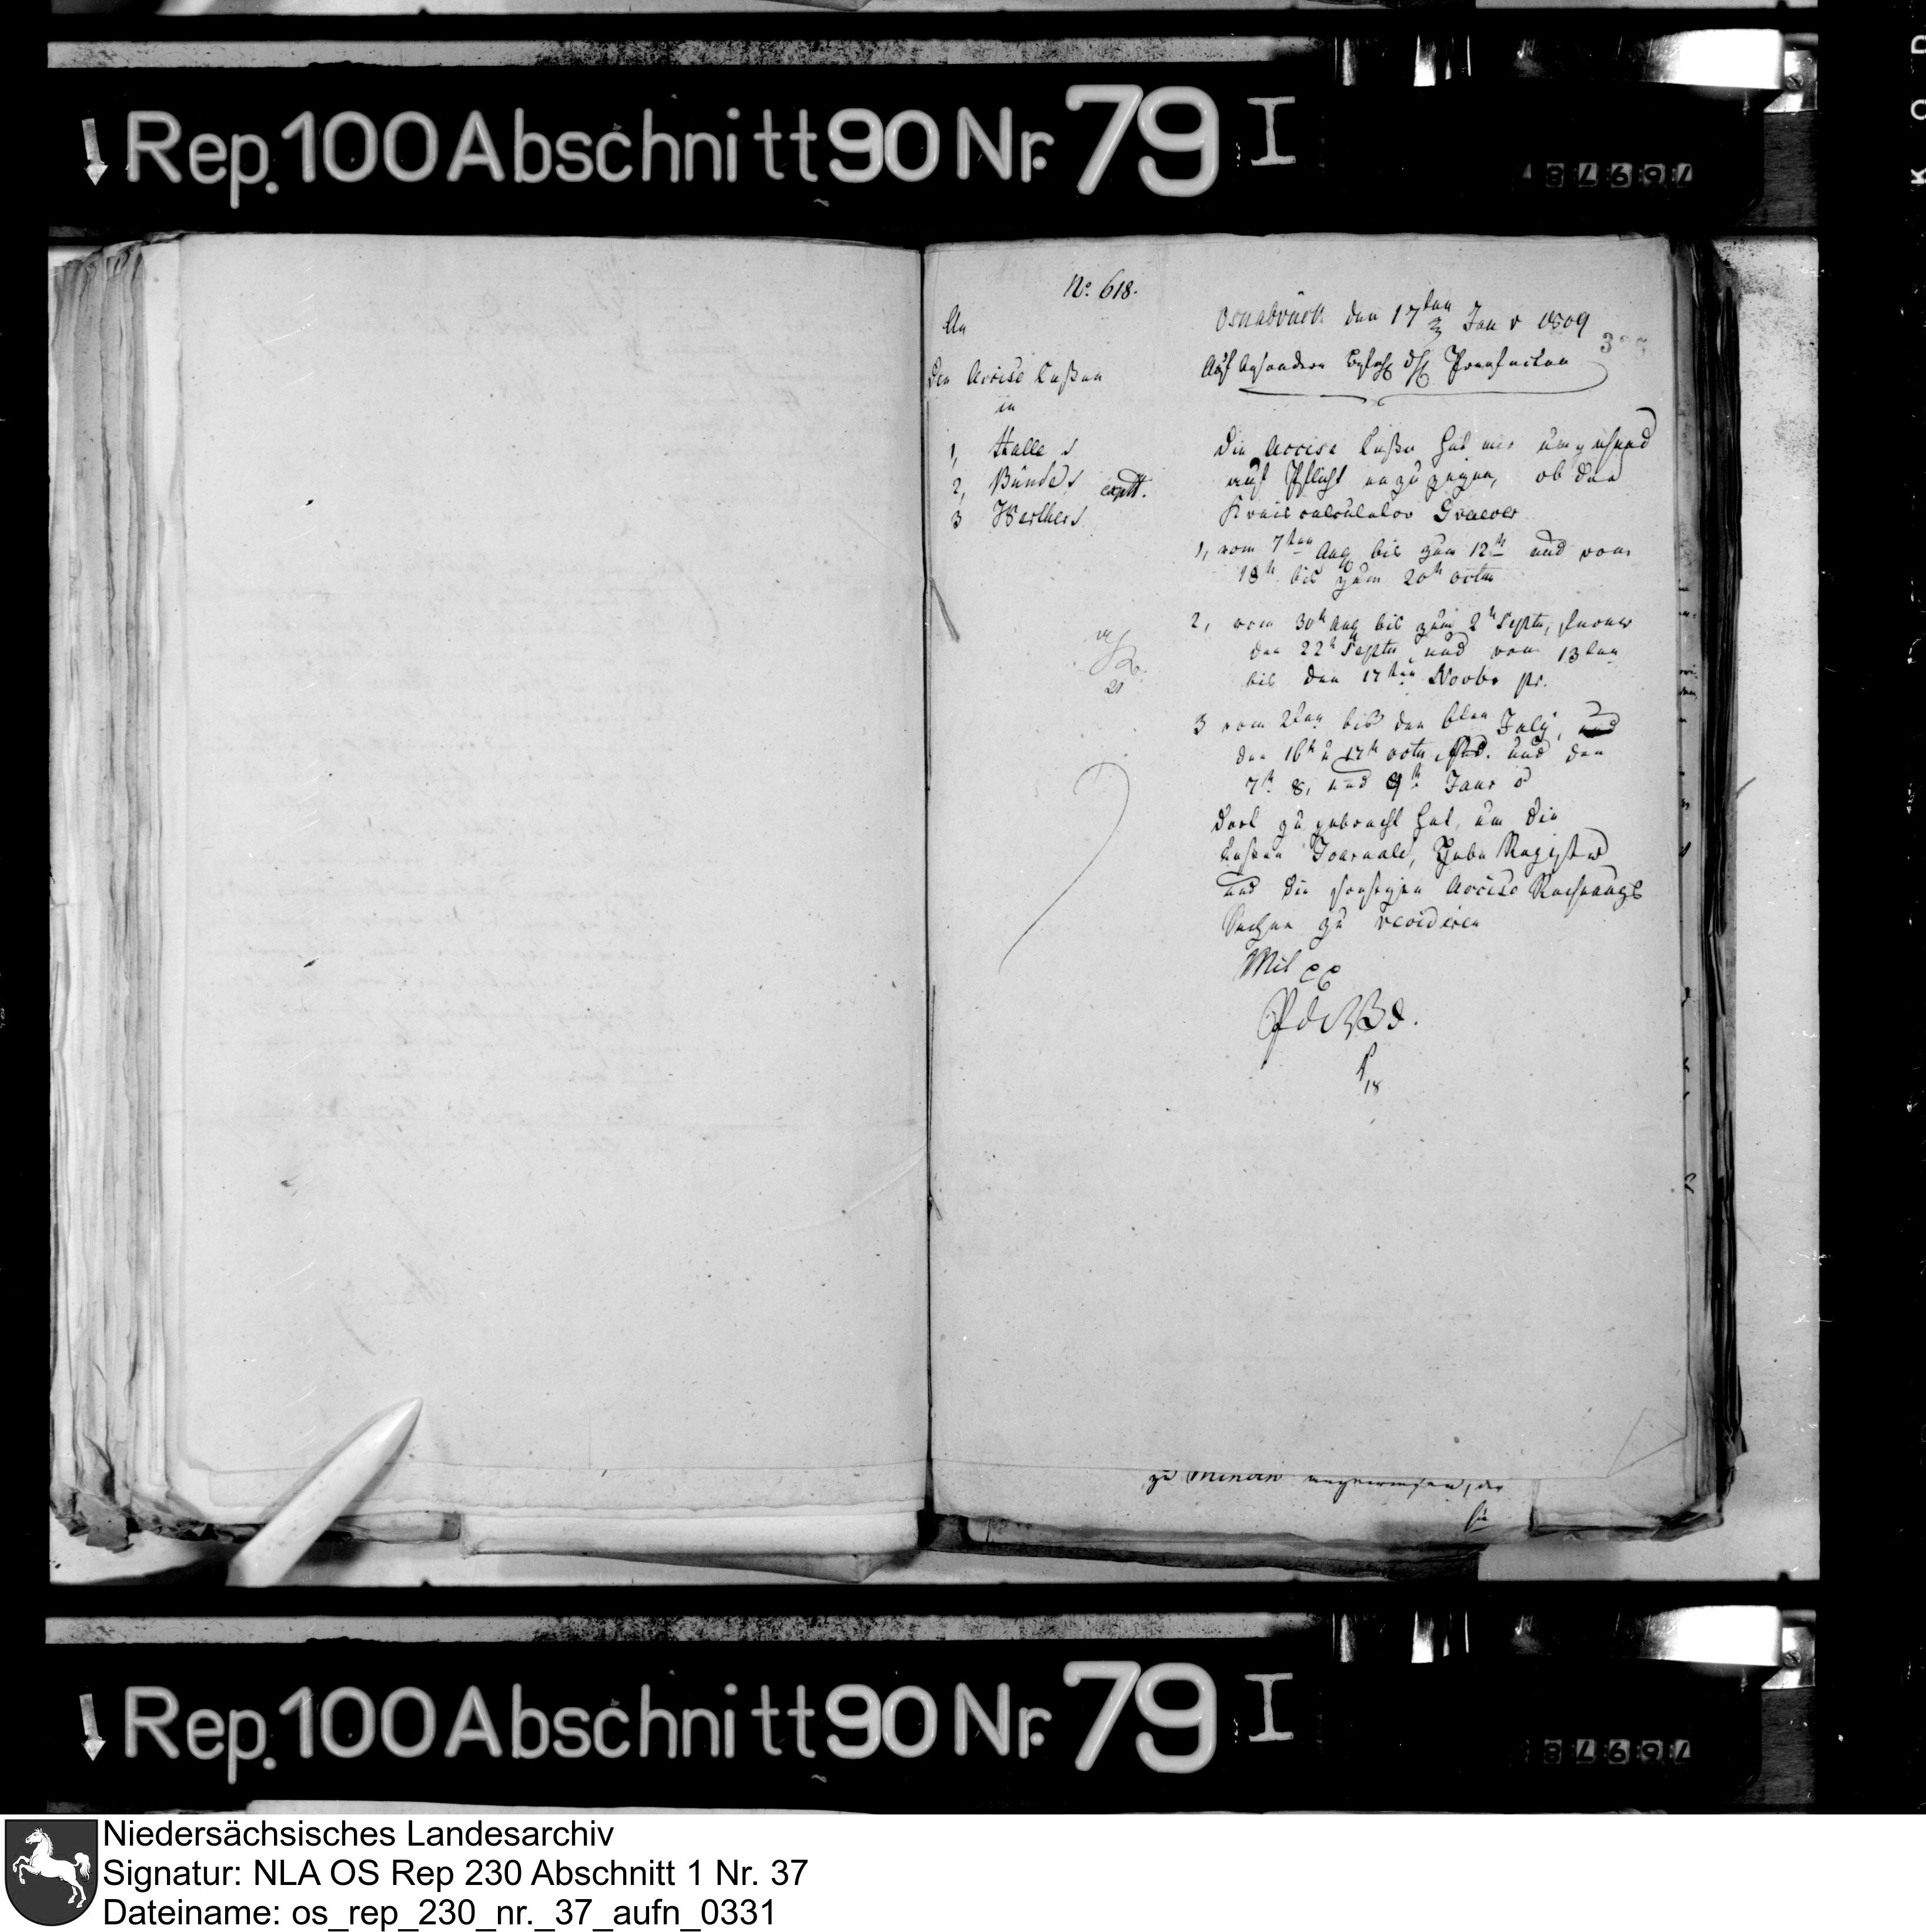 Rep. 100 Abschnitt 90 Nr. 79 I
No. 618.
An
Osnabrück den 17ten Janr 1809
Den Accise Caßen
Auf besondern Befehl des Praefecten
in
1, Halle
2, Bünde
expdt.
3 Werther
Die Accise Caße hat mir umgehend
auf Pflicht anzuzeigen, ob der
Kreiscalculator Graever
1, vom 7ten Aug bis zum 12t und vom
18t bis zum 20t octbr
2, vom 30t Aug bis zum 2t Septbr, ferner
den 22t Septbr und vom 13ten
bis den 17ten Novbr pr.
3 vom 2ten bis den 6ten July,
den 16t u 17t octbr und den
7t. 8, und 9t. Janr
dort zugebracht hat, um die
Caßen Journale, Hebe Register
und die sonstigen Accise Rechnungs
Sachen zu revidiren
Mit
18
21
zu Minden angewiesen, der
Rep. 100 Abschnitt 90 Nr. 79 I
Niedersächsisches Landesarchiv
Signatur: NLA OS Rep 230 Abschnitt 1 Nr. 37
Dateiname: os_rep_230_nr._37_aufn_0331